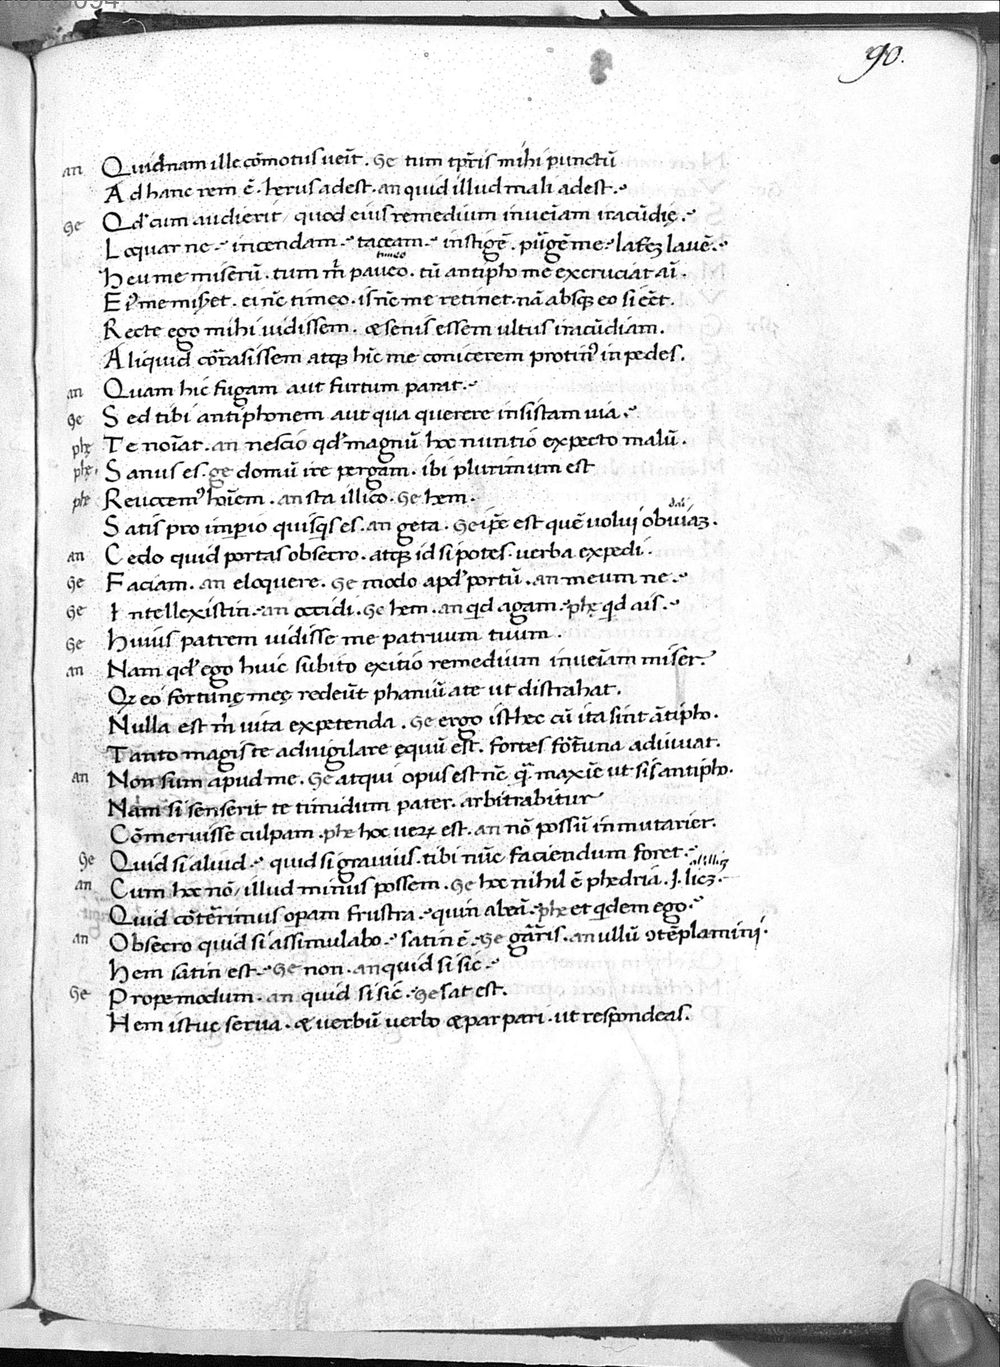 90.
an Quidnam ille cōmotus ueīt. Ge tum tp̄ris mihi punctū
Ad hanc rem ē. herus adest. an quid illud mali adest.
Ge Qđ cum audierit, quod eius remedium inueīam iracūdię.
Loquar ne. incendam. taceam. instigē. pūgē me. laterē lauē.
Heu me miserū. tum m̄ paueo. tū antipho me excruciat aī.
timeo
Eiꝰ me miseret. ei nc̄ timeo. is nc̄ me retinet. nā absqꝫ eo si eēt.
Recte ego mihi uidissem. & senis essem ultus iracūdiam.
Aliquid cōrasissem atqꝫ hīc me conicerem protinꝰ in pedes.
an Quam hic fugam aut furtum parat.
Ge Sed tibi antiphonem aut qua querere insistam uia.
phę Te noīat. an nescio qđ magnū hoc nuntio expecto malū.
phę. Sanus es. ge domū ire pergam. ibi plurimum est
phe Reuocemꝰ hoīem. an sta illico. Ge hem.
Satis pro imperio quisqs es. an geta. Ge ip̄e est quē uolui obuiaꝫ.
an Cedo quid portas obsecro. atqꝫ id si potes. uerba expedi.
Ge Faciam. an eloquere. Ge modo apđ portū. an meum ne.
Ge Intellexistin. an occidi. Ge hem. an qd agam. phę qd ais.
Ge Huius patrem uidisse me patruum tuum.
an Nam qđ ego huic subito exitio remedium inueīam miser.
Qꝫ eo fortunę meę redeūt phaniū a te ut distrahat.
Nulla est m̄ uita expetenda. Ge ergo isthec cū ita sint ātipho.
Tanto magis te aduigilare equū est. fortes fōtuna adiuuat.
an Non sum apud me. Ge atqui opus est nc̄ qm̄ maxīe ut sis antipho.
Nam si senserit te timidum pater. arbitrabitur
Cōmeruisse culpam. phe hoc ueꝝ est. an nō possū inmutarier.
Ge Quid si aliud. quid si grauius. tibi nūc faciendum foret.
an Cum hoc nō, illud minus possem. Ge hoc nihil ē phedria. J. licꝫ.
Quid cōterimus operam frustra. quin abeā. phe et qdem ego.
an Obsecro quid si assimulabo. satin ē. Ge garris. an uultū ɔtēplamini.
Hem satin est. Ge non. an quid si sic.
Ge Propemodum. an quid si sic. Ge sat est.
Hem istuc serua. & uerbū uerbo & par pari. ut respondeas.